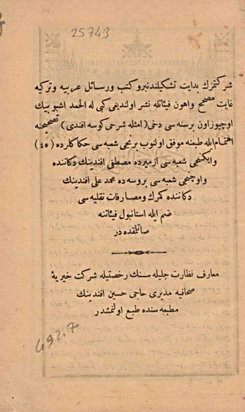 25743
شركتمزك بدايت تشكيلندنبرو كتب و رسائل عربيه و تركيه
غايت مصحح و اهون فيئاتله نشر اولنديغى كبى له الحمد اشبو بيك
اوچيوز اون برسنه سى دخى (امثله شرحى كوسه افندى) تصحيحنه
اهتمام ايله طبعنه موفق اولنوب برنجى شعبه سى حكاكلرده (٤٥)
و ايكنجى شعبه سى ازميرده مصطفى افندينك دكاننده
و اوچنجى شعبه سى بروسه ده محمد على افندينك
دكاننده كمرك و مصارفات نقليه سى
ضم ايله استانبول فيئاتنه
صاتلقده در
معارف نظارت جليله سنك رخصتيله شركت خيريۀ
صحافيه مديرى حاجى حسين افندينك
مطبعه سنده طبع اولنمشدر
492.7